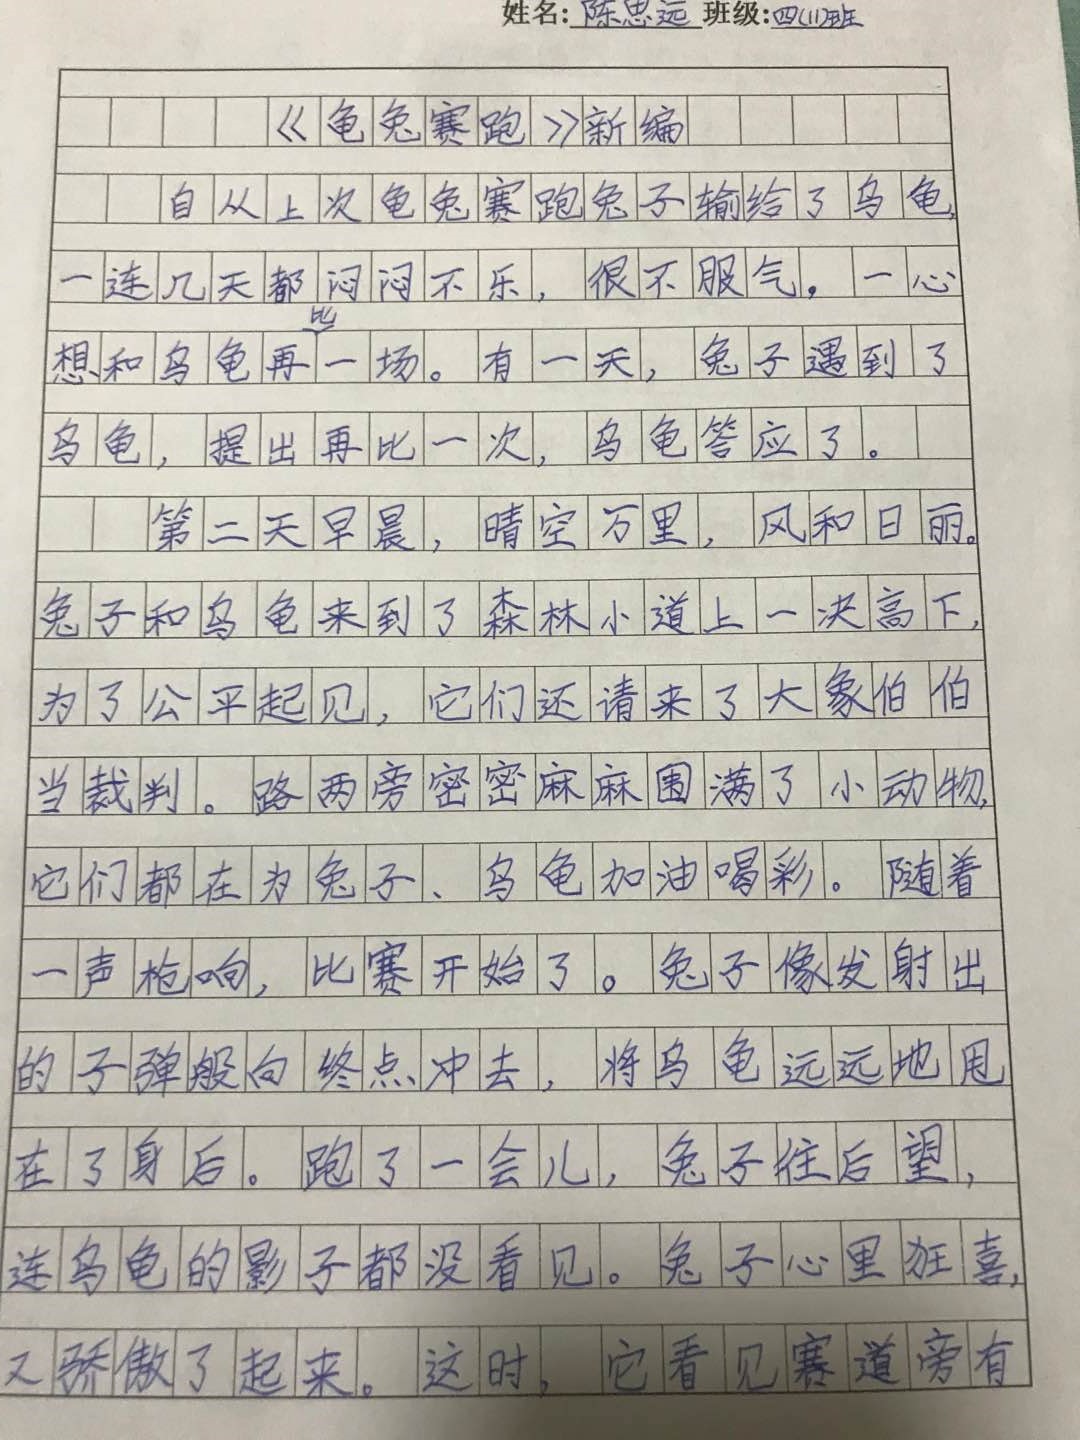 姓名:陈思远 班级:四(1)班
《龟兔赛跑》新编
自从上次龟兔赛跑兔子输给了乌龟,
一连几天都闷闷不乐，很不服气。一心
想和乌龟再比一场。有一天，兔子遇到了
乌龟，提出再比一次，乌龟答应了。
第二天早晨，晴空万里，风和日丽。
兔子和乌龟来到了森林小道上一决高下,
为了公平起见，它们还请来了大象伯伯
当裁判。路两旁密密麻麻围满了小动物,
它们都在为兔子、乌龟加油喝彩。随着
一声枪响，比赛开始了。兔子像发射出
的子弹般向终点冲去，将乌龟远远地甩
在了身后。跑了一会儿，兔子往后望，
连乌龟的影子都没看见。兔子心里狂喜,
又骄傲了起来。这时，它看见赛道旁有